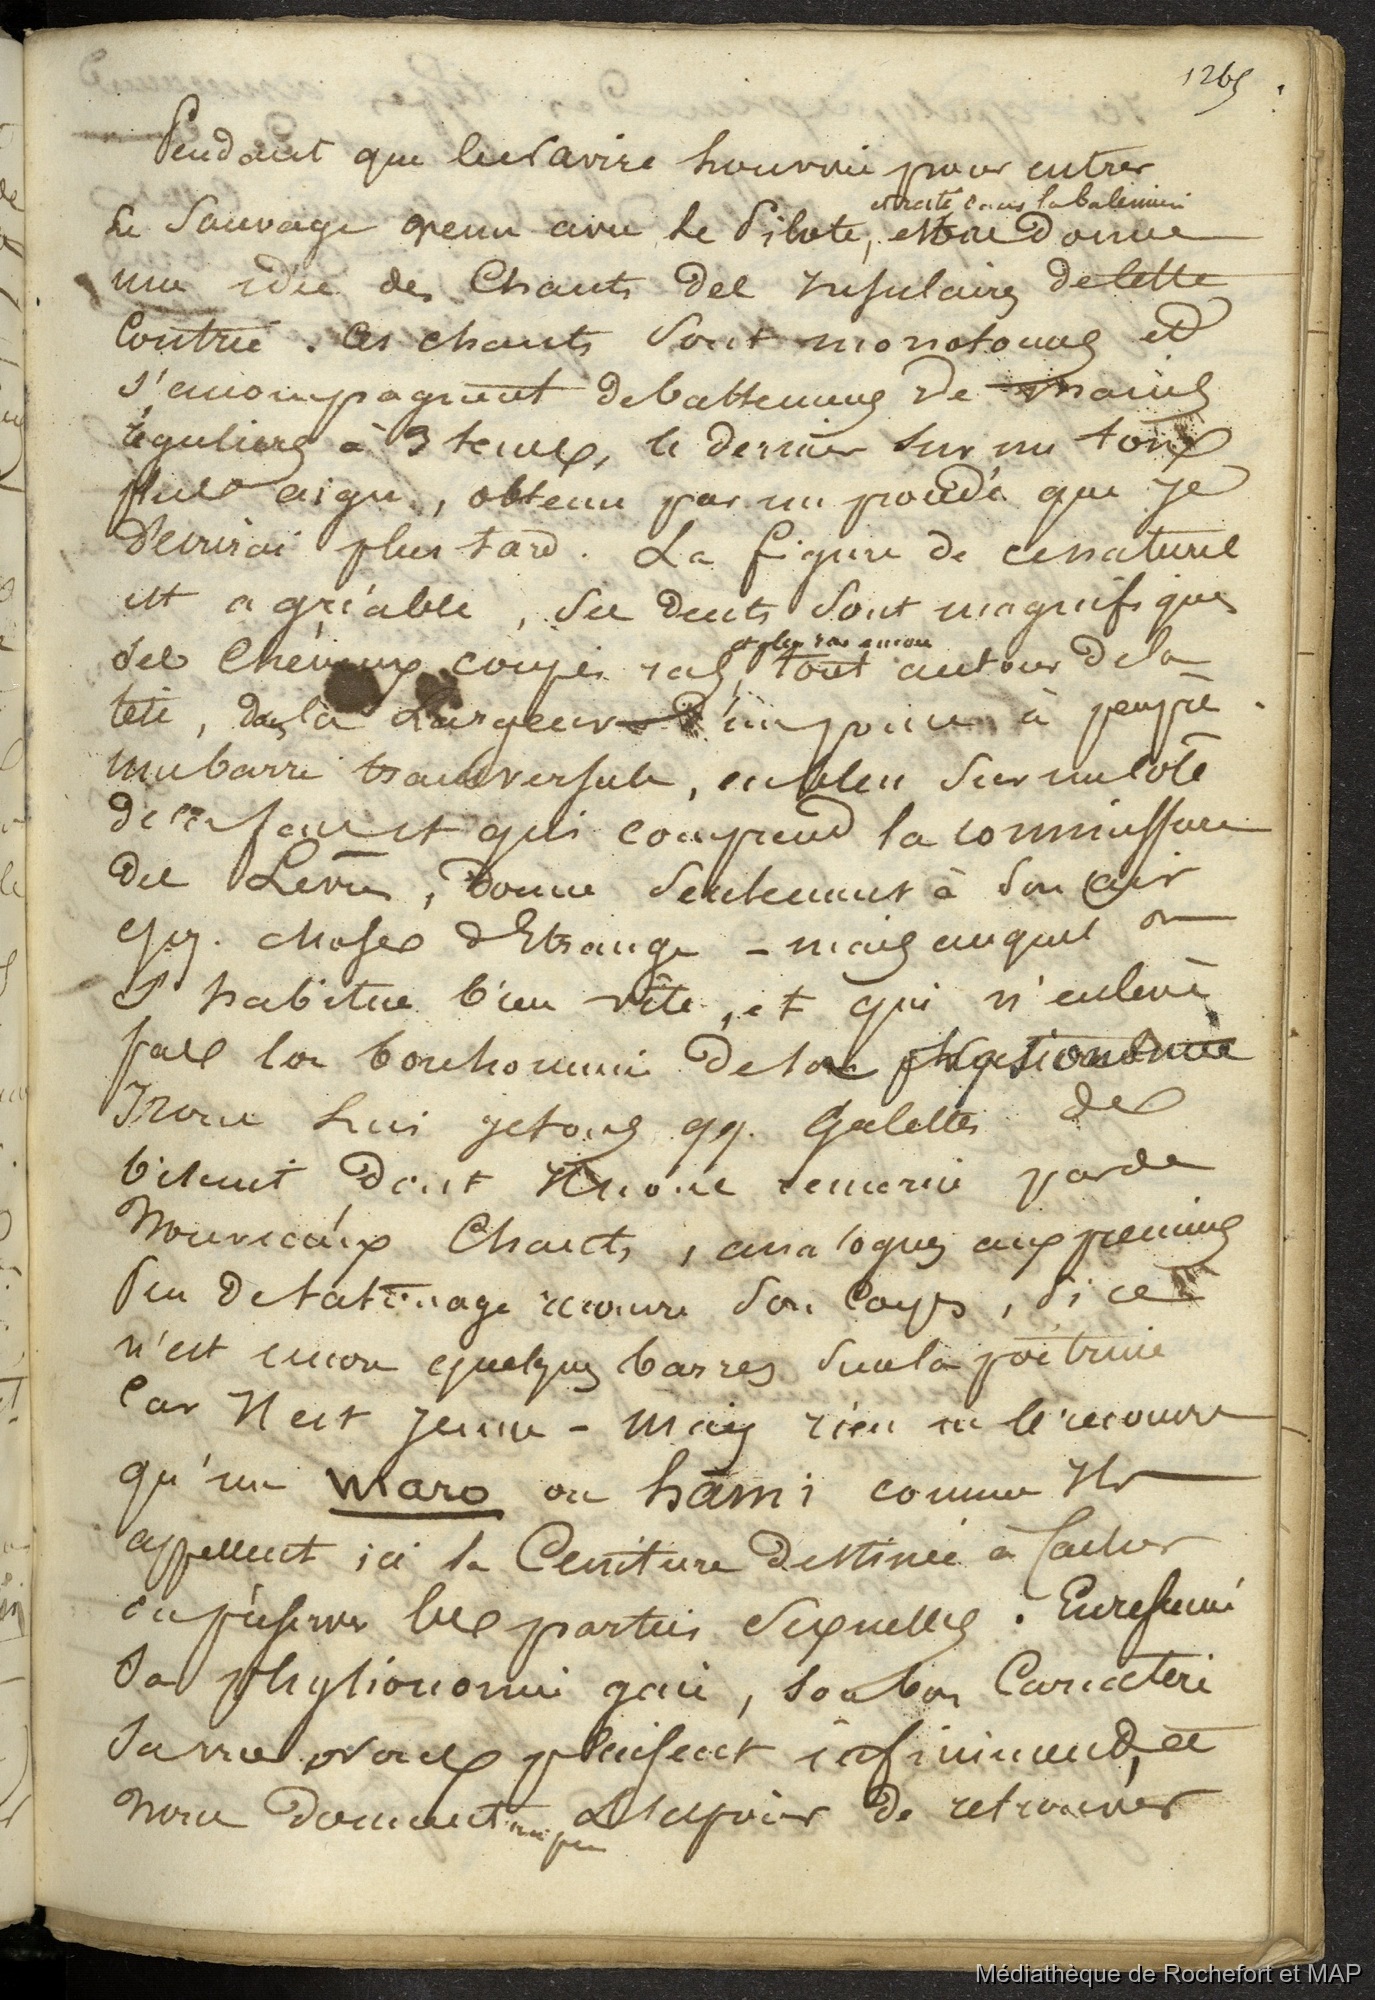 1265
Pendant que le navire pour entrer
et resté dans la baleinière
Le Sauvage venu avec le Pilote, nous donne
une idée des Chants des insulaires de cette
Contrée. Ces chants sont monotones et
s'accompagnent de battemens de mains
réguliers à 3 tems, le dernier sur un ton
plus aigu, obtenu par un procédé que je
décrirai plus tard. La figure de ce naturel
est agréable, ses dents sont magnifiques
et plus ras encore
ses Cheveux coupés ras, tout autour de la
tete, dans la Largeur d'un pouce à peu près.
une barre transversale, en bleu sur un côté
de la face et qui comprend la commissure
des Levres, donne seulement à son air
qq. chose d'Etrange - mais auquel on
s'habitue bien vite, et qui n'enlève
pas la bonhommie de sa physionomie
Nous lui jetons qq. Galettes de
biscuit, dont Il nous remercie par de
Nouveaux Chants, analogues aux premiers
Peu de tatouage recouvre son Corps, si ce
n'est encore quelques barres sur la poitrine
Car Il est jeune - Mais rien ne le recouvre
qu'un maro ou hami comme Ils
appellent ici la Ceinture destinée à Cacher
ou préserver les parties sexuelles. En résumé
Sa physionomie gaie, son bon Caractère
Sa vue nous plaisent infiniment, et
Nous donnent un peu L'espoir de retrouver
Médiathèque de Rochefort et MAP